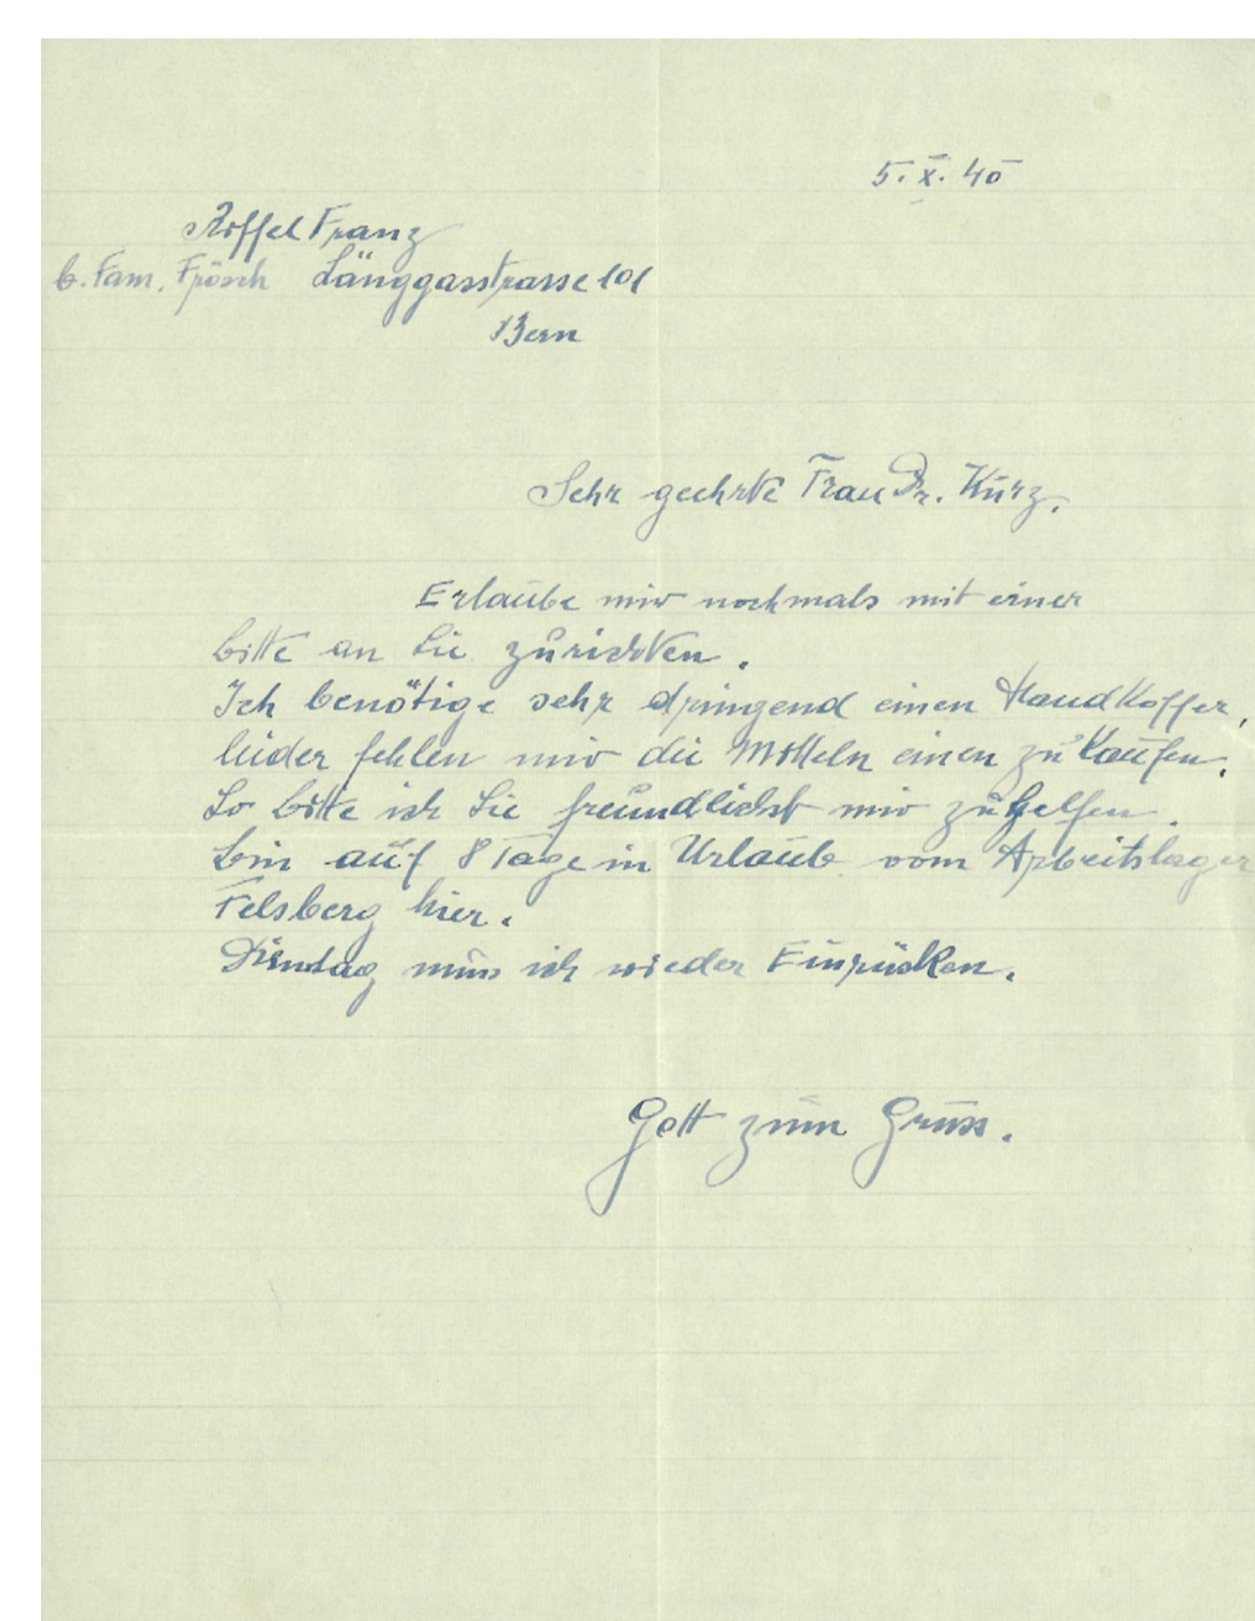 5. X. 40
Röffel Franz
b. Fam. Frösch Länggasstrasse 101
Bern
Sehr geehrte Frau Dr. Kurz.
Erlaube mir nochmals mit einer
bitte an Sie zurichten.
Ich benötige sehr dringend einen Handkoffer,
leider fehlen mir die Mitteln einen zu Kaufen.
So bitte ich Sie freundlichst mir zu helfen.
bin auf 8 Tage in Urlaub vom Arbeitslager
Felsberg hier.
Dienstag muss ich wieder Einrücken.
Gott zum Gruss.